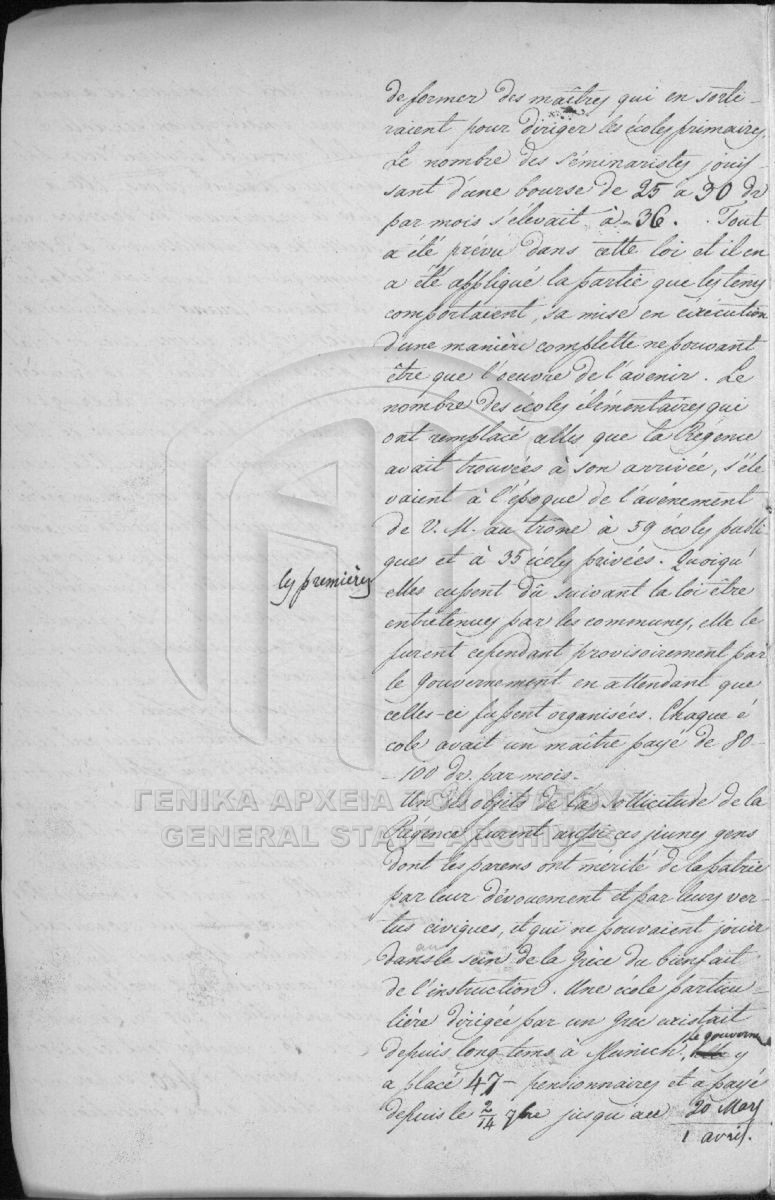 de former des maîtres qui en sorti-
raient pour diriger les écoles primaires.
Le nombre des séminaristes jouis-
sant d'une bourse de 25 à 30 dr
par mois s'élevait à 36. Tout
a été prévu dans cette loi et il en
a été appliqué la partie que les tems
comportaient, sa mise en exécution
d'une manière complette ne pouvant
être que l'oeuvre de l'avenir. Le
nombre des écoles élémentaires qui
ont remplacé celles que la Régence
avait trouvées à son arrivée, s'éle
vaient à l'époque de l'avénement
de V. M. au trône à 59 ecoles publi
ques et à 35 écoles privées. Quoiqu'
les premières
elles eussent dû suivant la loi être
entretenues par les communes, elle le
furent cependant provisoirement par
le Gouvernement en attendant que
celles-ci fussent organisées. Chaque é
cole avait un maître payé de 80-
-100 dr. par mois.
ΓΕΝΙΚΑ ΑΡΧΕΙΑ ΤΟΥ ΚΡΑΤΟΥΣ
GENERAL STATE ARCHIVES
Un des objets de la sollicitude de la
Régence furent aussi ces jeunes gens
dont les parens ont mérité de la patrie
par leur dévouement et par leurs ver-
tus civiques, et qui ne pouvaient jouir
au
dans le sein de la Grèce du bienfait
de l'instruction. Une école particu-
lière dirigée par un Grec existait
le gouverne
depuis long-tems à Munich. elle y
a placé 47 - pensionnaires et a payé
depuis le 2/14 7bre jusqu'au 20 Mars
1 avril.